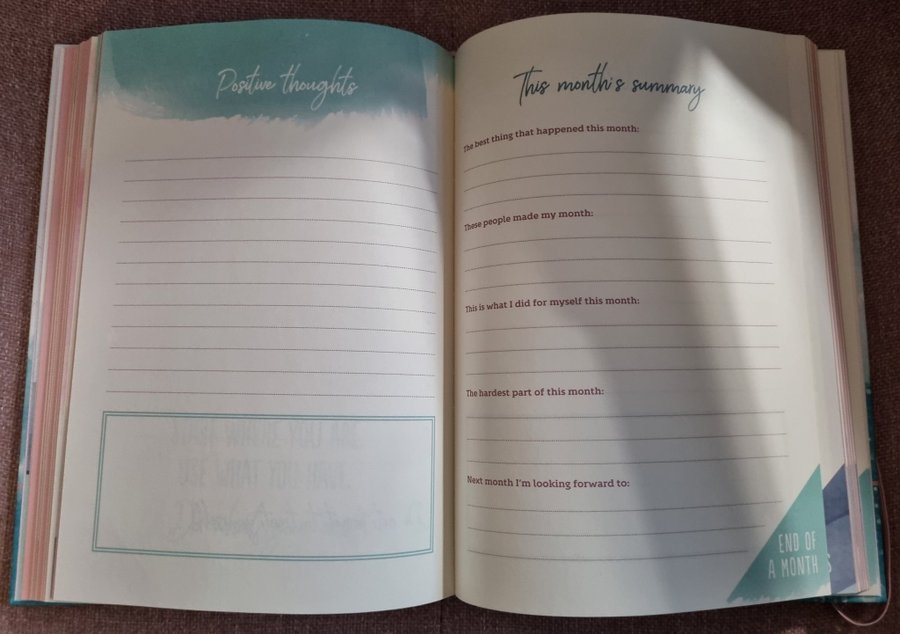 Positive thoughts
This month's summary
The best thing that happened this month:
These people made my month:
This is what I did for myself this month:
The hardest part of this month:
Next month I'm looking forward to:
END OF
A MONTH